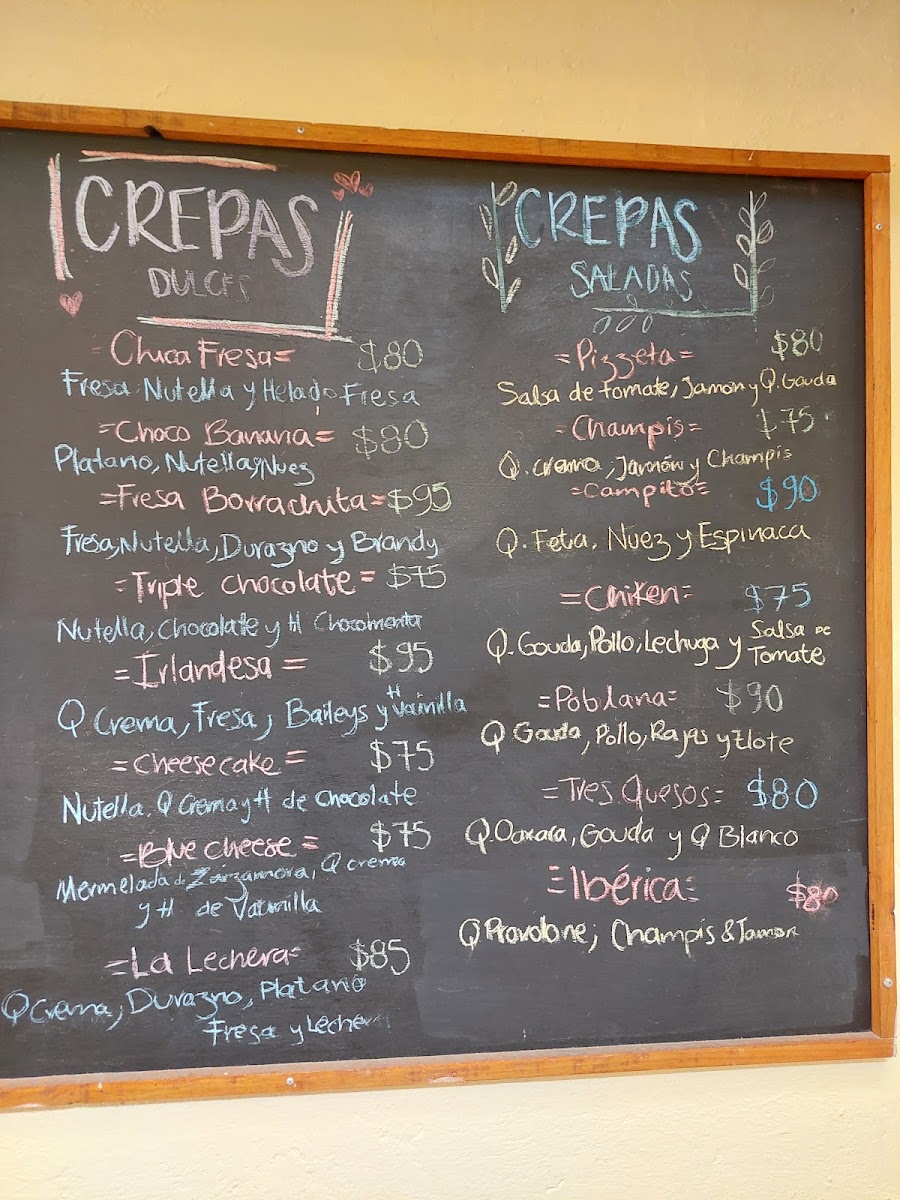 CREPAS
DULCES
Chuca Fresa= $80
Fresa, Nutella y Helado Fresa
=Choco Banana= $80
Platano, Nutella y Nuez
=Fresa Borrachita= $95
Fresa, Nutella, Durazno y Brandy
=Triple chocolate= $75
Nutella, Chocolate y H Chocomenta
=Irlandesa= $95
Q Crema, Fresa, Baileys y H Vainilla
=Cheesecake= $75
Nutella, Q Crema y H de chocolate
=Blue cheese= $75
Mermelada de Zarzamora, Q crema
y H de Vainilla
=La Lechera= $85
Q Crema, Durazno, Platano
Fresa y Lechera
CREPAS
SALADAS
=Pizzeta= $80
Salsa de tomate, Jamón y Q. Gouda
=Champis= $75
Q. crema, Jamón y Champis
=Campito= $90
Q. Feta, Nuez y Espinaca
=Chiken= $75
Q. Gouda, Pollo, Lechuga y Salsa de Tomate
=Poblana= $90
Q Gouda, Pollo, Rajas y Elote
=Tres Quesos= $80
Q. Oaxaca, Gouda y Q Blanco
=Ibérica= $80
Q Provolone, Champis & Jamon